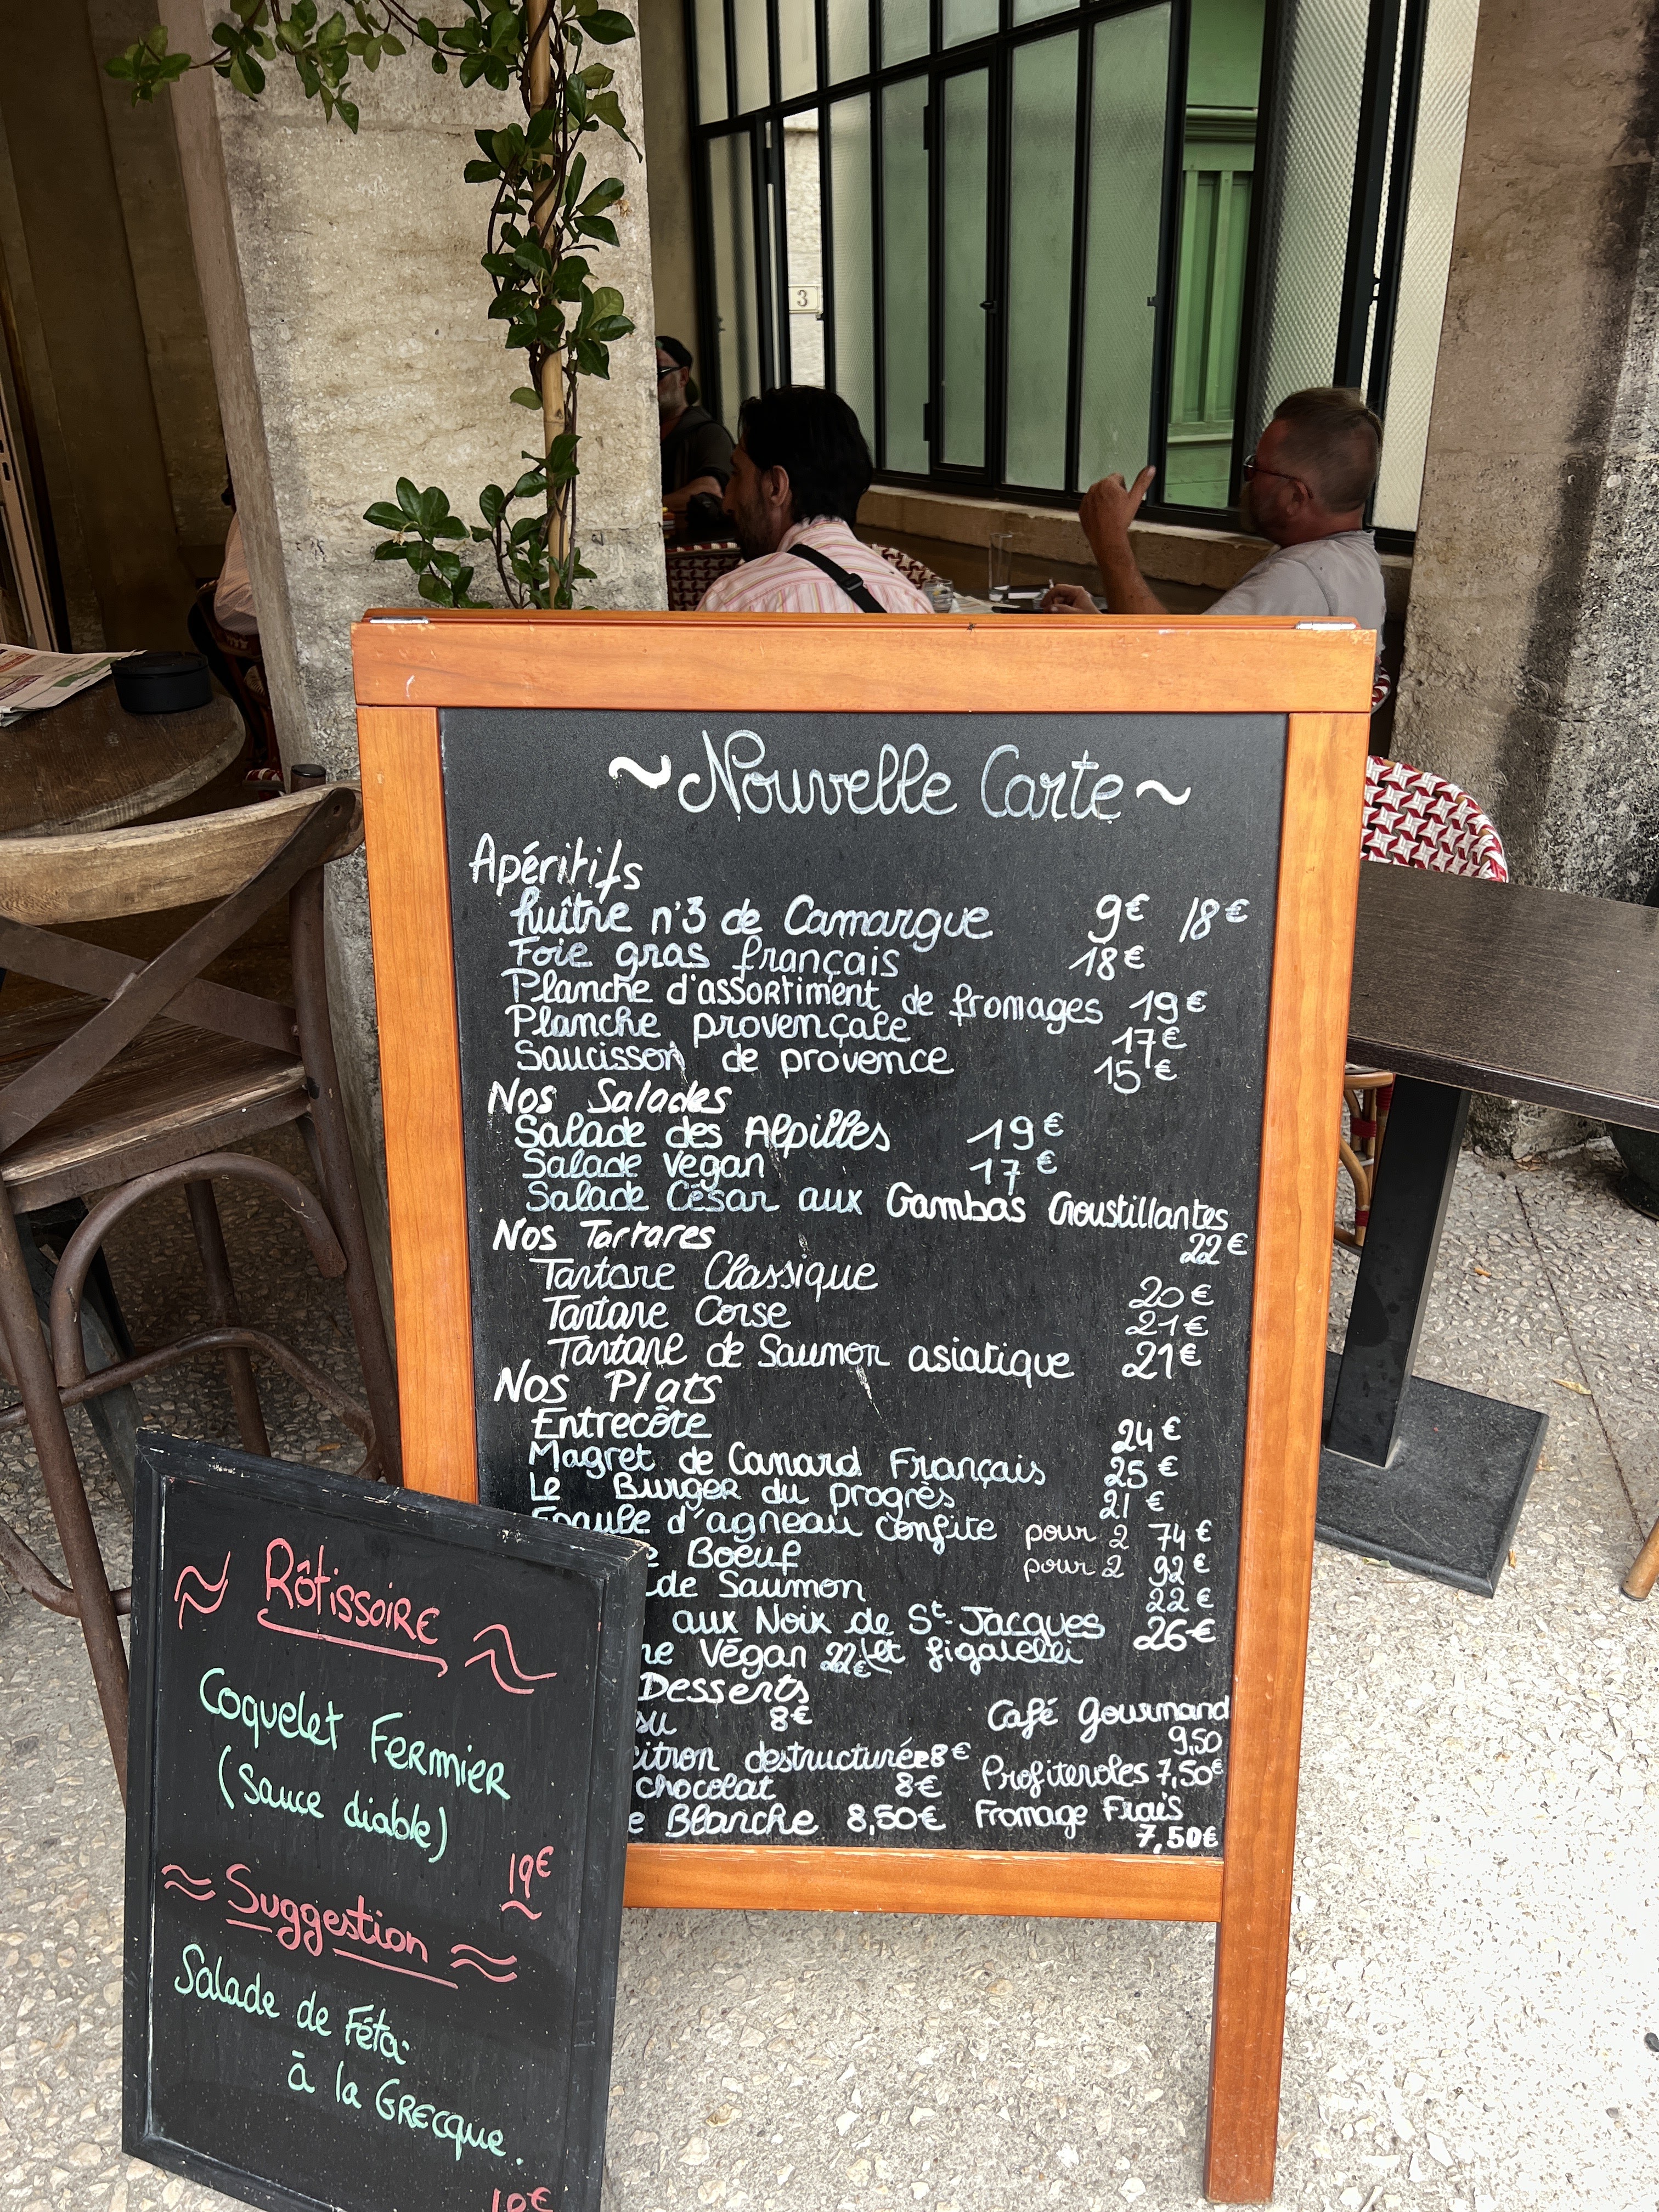 3
~ Nouvelle Carte ~
Apéritifs
huître n°3 de Camargue 9€ 18€
Foie gras français 18€
Planche d'assortiment de fromages 19€
Planche provençale 17€
Saucisson de provence 15€
Nos Salades
Salade des Alpilles 19€
Salade vegan 17€
Salade César aux Gambas Croustillantes
22€
Nos Tartares
Tartare Classique 20€
Tartare Corse 21€
Tartare de Saumon asiatique 21€
Nos Plats
Entrecôte 24€
Magret de Canard Français 25€
Le Burger du progrès 21€
Epaule d'agneau confite pour 2 74€
Boeuf pour 2 92€
de Saumon 22€
aux Noix de St-Jacques 26€
Végan 22€ et figatelli
Desserts
8€ Café Gourmand
9,50
citron destructurée 8€ Profiteroles 7,50€
chocolat 8€
Blanche 8,50€ Fromage Frais
7,50€
Rôtissoire
Coquelet Fermier
(sauce diable)
19€
Suggestion
Salade de Féta
à la Grecque.